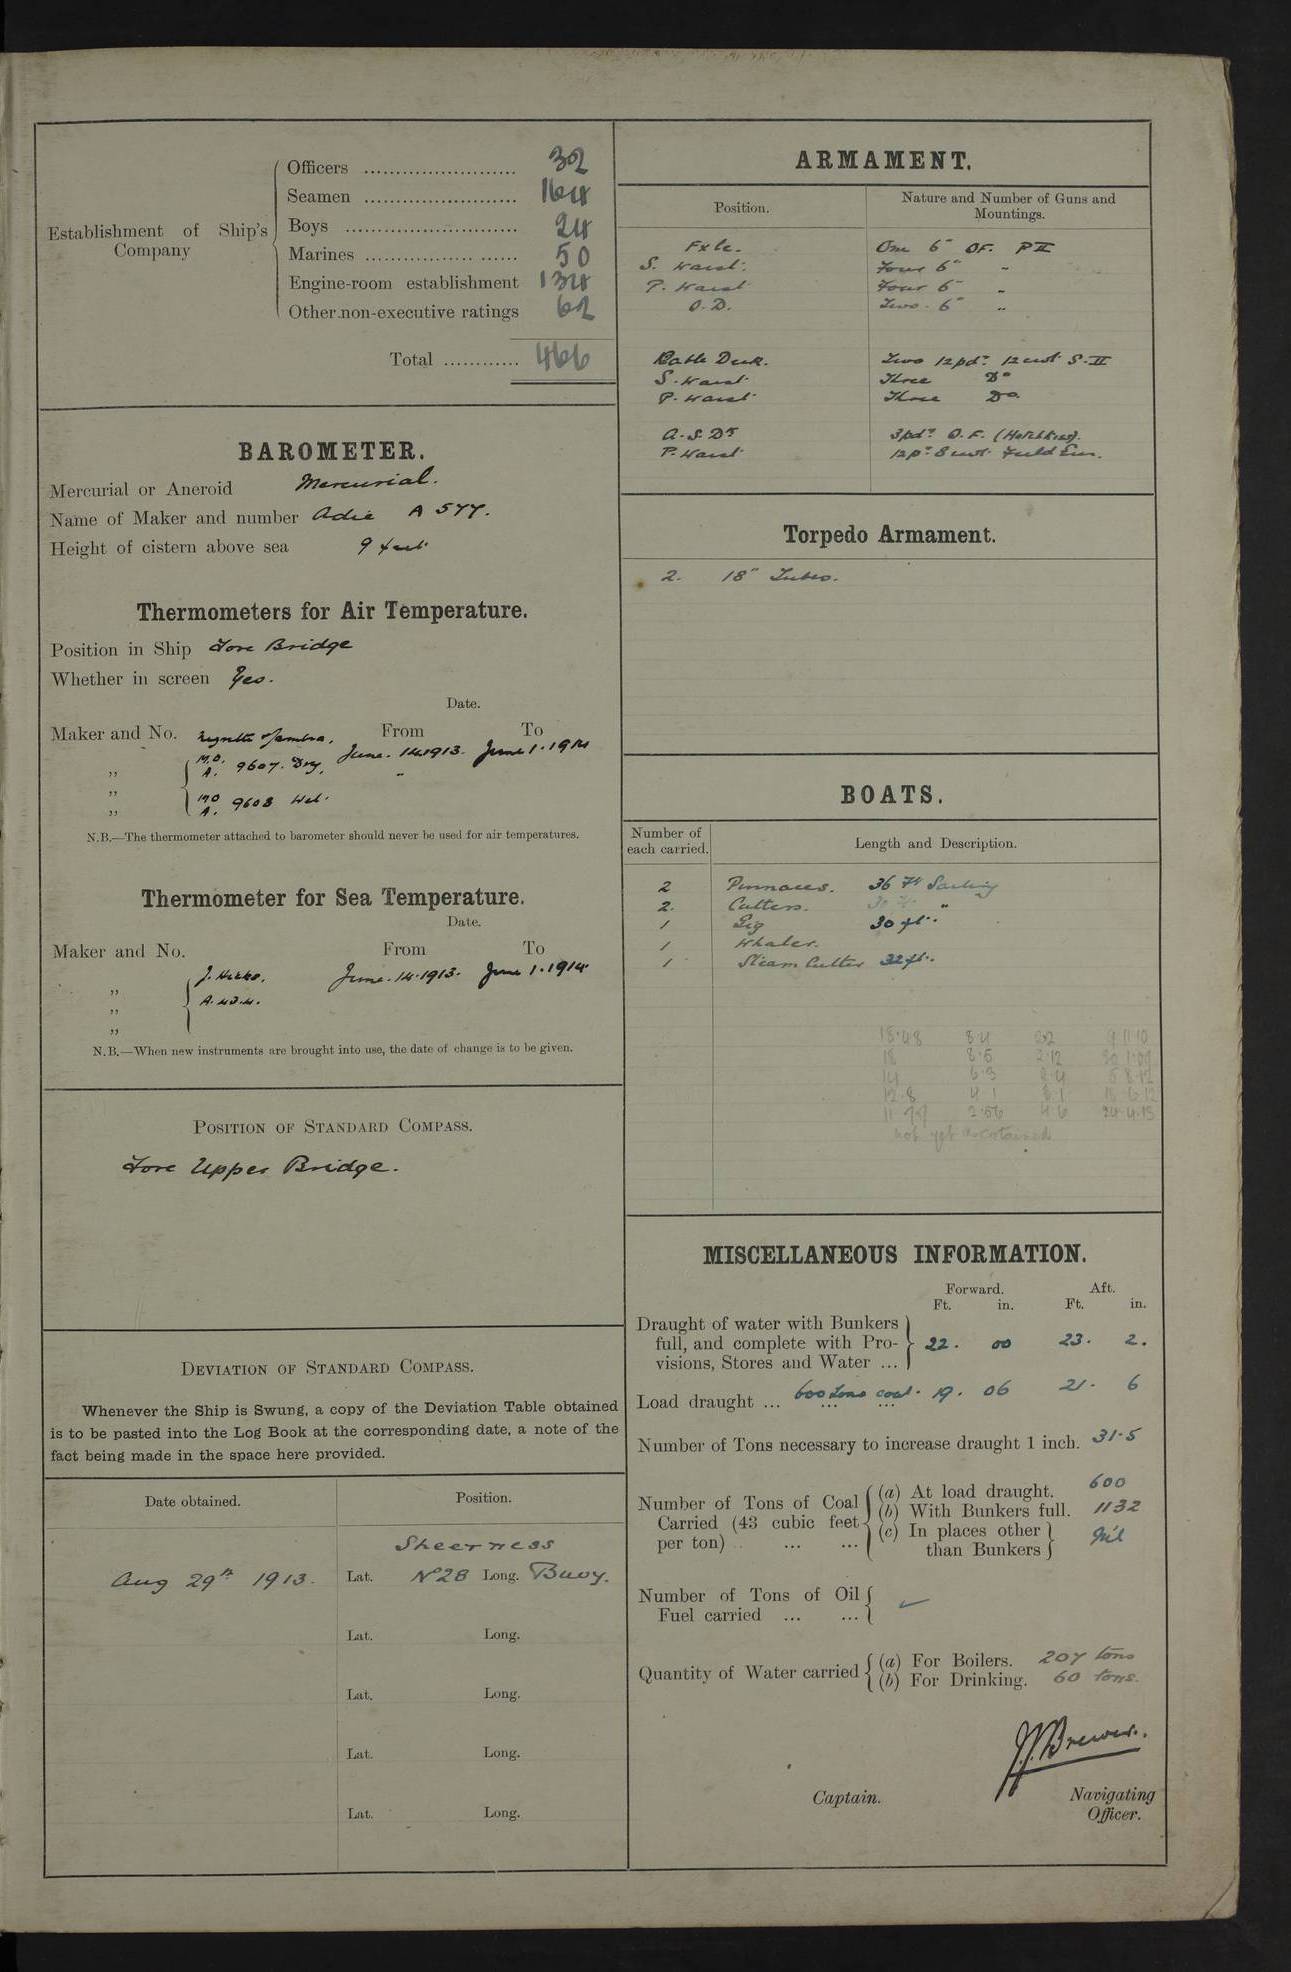 Establishment of Ship's Company
Officers ........................ 32
Seamen ........................ 164
Boys ........................... 24
Marines ................. ...... 50
Engine-room establishment 134
Other non-executive ratings 62
Total ............ 466
BAROMETER.
Mercurial or Aneroid Mercurial.
Name of Maker and number Adie A 577.
Height of cistern above sea 9 feet.
Thermometers for Air Temperature.
Position in Ship Fore Bridge
Whether in screen Yes.
Date.
Maker and No. From To
June. 14.1913. June 1. 1914
M.O. A. 9607. Dry. "
M.O. A. 9608 Wet.
N.B.—The thermometer attached to barometer should never be used for air temperatures.
Thermometer for Sea Temperature.
Date.
Maker and No. From To
J. Hicks. June. 14. 1913. June 1. 1914.
N.B.—When new instruments are brought into use, the date of change is to be given.
POSITION OF STANDARD COMPASS.
Fore Upper Bridge.
DEVIATION OF STANDARD COMPASS.
Whenever the Ship is Swung, a copy of the Deviation Table obtained
is to be pasted into the Log Book at the corresponding date, a note of the
fact being made in the space here provided.
Date obtained. Position.
Sheerness
Aug 29th 1913. Lat. No 28 Long. Buoy.
Lat. Long.
Lat. Long.
Lat. Long.
Lat. Long.
ARMAMENT.
Position. Nature and Number of Guns and Mountings.
Fxle. One 6" QF. P II
S. Waist. Four 6" "
P. Waist Four 6" "
Q. D. Two. 6" "
Battle Deck. Two 12 pdr 12 cwt S. II
S. Waist. Three Do
P. Waist. Three Do.
3 pdr Q. F. (Hotchkiss).
P. Waist. 12 pr 8 cwt. Field Gun.
Torpedo Armament.
2. 18" Tubes.
BOATS.
Number of each carried. Length and Description.
2 Pinnaces. 36 Ft Sailing
2. Cutters. 30 Ft "
1 Gig 30 ft.
1 Whaler.
1 Steam Cutter 32 ft.
not yet ascertained
MISCELLANEOUS INFORMATION.
Forward. Aft.
Ft. in. Ft. in.
Draught of water with Bunkers
full, and complete with Pro- 22. 00 23. 2.
visions, Stores and Water ...
Load draught ... 600 tons coal. 19. 06 21. 6
Number of Tons necessary to increase draught 1 inch. 31.5
Number of Tons of Coal Carried (43 cubic feet per ton) ... ...
(a) At load draught. 600
(b) With Bunkers full. 1132
(c) In places other than Bunkers Nil
Number of Tons of Oil
Fuel carried ... ...
Quantity of Water carried
(a) For Boilers. 207 tons
(b) For Drinking. 60 tons.
Brewer.
Captain. Navigating
Officer.